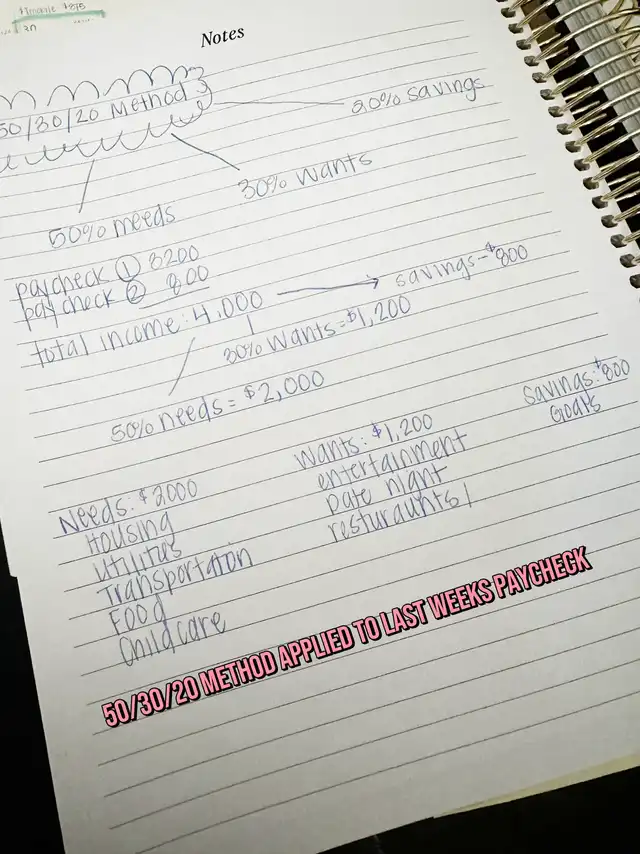 $875
30
Notes
50/30/20 Method
20% savings
30% wants
50% needs
paycheck ① 3200
paycheck ② 800
total income: 4,000
savings-$800
30% wants=$1,200
50% needs = $2,000
Needs: $2000
Housing
Utilities
Transportation
Food
Childcare
Wants: $1,200
entertainment
Date night
resturaunts
Savings: $800
Goals
50/30/20 METHOD APPLIED TO LAST WEEKS PAYCHECK